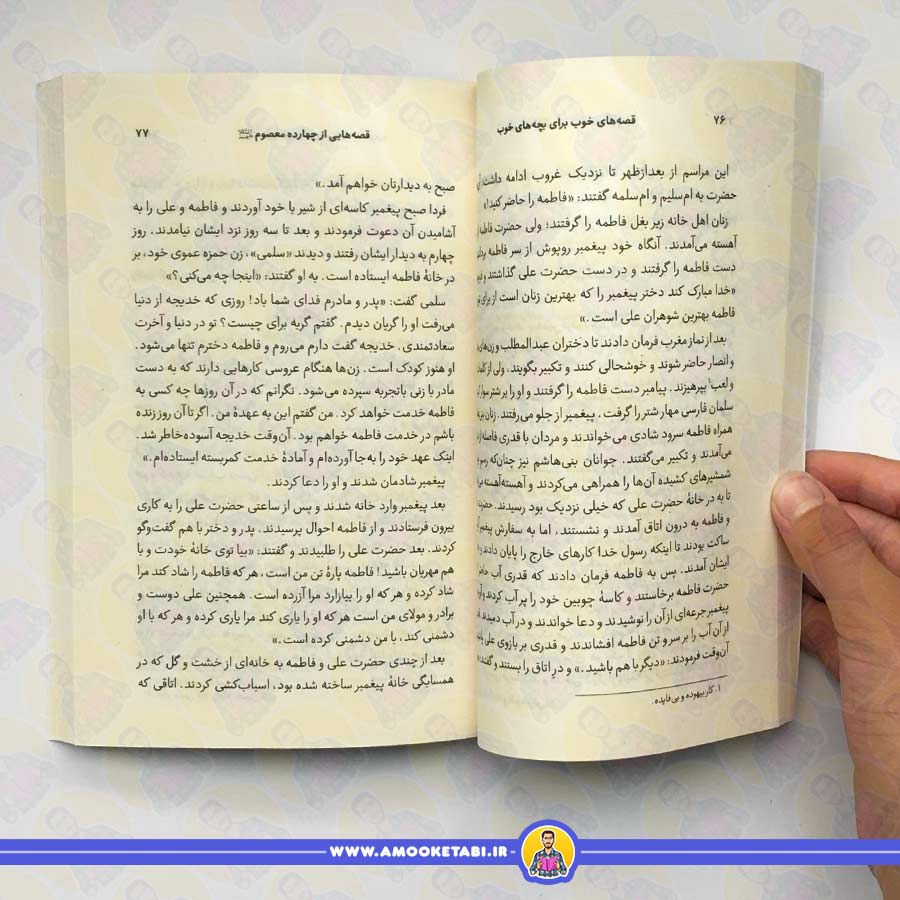 ۷۶
قصه‌های خوب برای بچه‌های خوب
این مراسم از بعدازظهر تا نزدیک غروب ادامه داشت. آن
حضرت به ام‌سلیم و ام‌سلمه گفتند: «فاطمه را حاضر کنید!»
زنان اهل خانه زیر بغل فاطمه را گرفتند؛ ولی حضرت فاطمه
آهسته می‌آمدند. آنگاه خود پیغمبر روپوش از سر فاطمه
دست فاطمه را گرفتند و در دست حضرت علی گذاشتند و
«خدا مبارک کند دختر پیغمبر را که بهترین زنان است از برای
فاطمه بهترین شوهران علی است.»
بعد از نماز مغرب فرمان دادند تا دختران عبدالمطلب و زن‌های
و انصار حاضر شوند و خوشحالی کنند و تکبیر بگویند، ولی از
و لعب۱ بپرهیزند. پیامبر دست فاطمه را گرفتند و او را بر شتر سوار
سلمان فارسی مهار شتر را گرفت. پیغمبر از جلو می‌رفتند. زنان نیز
همراه فاطمه سرود شادی می‌خواندند و مردان با قدری فاصله از
می‌آمدند و تکبیر می‌گفتند. جوانان بنی‌هاشم نیز چنان‌که رسم
شمشیرهای کشیده آن‌ها را همراهی می‌کردند و آهسته‌آهسته
تا به در خانهٔ حضرت علی که خیلی نزدیک بود رسیدند. حضرت
و فاطمه به درون اتاق آمدند و نشستند، اما به سفارش پیغمبر
ساکت بودند تا اینکه رسول خدا کارهای خارج را پایان دادند و
ایشان آمدند. پس به فاطمه فرمان دادند که قدری آب حاضر
حضرت فاطمه برخاستند و کاسهٔ چوبین خود را پر آب کردند و
پیغمبر جرعه‌ای از آن را نوشیدند و دعا خواندند و در آب دمیدند
از آن آب را بر سر و تن فاطمه افشاندند و قدری بر بازوی علی
آن‌وقت فرمودند: «دیگر با هم باشید.» و در اتاق را بستند و گفتند:
۱. کار بیهوده و بی‌فایده.
قصه‌هایی از چهارده معصوم
۷۷
صبح به دیدارتان خواهم آمد.»
فردا صبح پیغمبر کاسه‌ای از شیر با خود آوردند و فاطمه و علی را به
آشامیدن آن دعوت فرمودند و بعد تا سه روز نزد ایشان نیامدند. روز
چهارم به دیدار ایشان رفتند و دیدند «سلمی»، زن حمزه عموی خود، بر
در خانهٔ فاطمه ایستاده است. به او گفتند: «اینجا چه می‌کنی؟»
سلمی گفت: «پدر و مادرم فدای شما باد! روزی که خدیجه از دنیا
می‌رفت او را گریان دیدم. گفتم گریه برای چیست؟ تو در دنیا و آخرت
سعادتمندی. خدیجه گفت دارم می‌روم و فاطمه دخترم تنها می‌شود.
او هنوز کودک است. زن‌ها هنگام عروسی کارهایی دارند که به دست
مادر یا زنی باتجربه سپرده می‌شود. نگرانم که در آن روزها چه کسی به
فاطمه خدمت خواهد کرد. من گفتم این به عهدهٔ من. اگر تا آن روز زنده
باشم در خدمت فاطمه خواهم بود. آن‌وقت خدیجه آسوده‌خاطر شد.
اینک عهد خود را به‌جا آورده‌ام و آمادهٔ خدمت کمربسته ایستاده‌ام.»
پیغمبر شادمان شدند و او را دعا کردند.
بعد پیغمبر وارد خانه شدند و پس از ساعتی حضرت علی را به کاری
بیرون فرستادند و از فاطمه احوال پرسیدند. پدر و دختر با هم گفت‌وگو
کردند. بعد حضرت علی را طلبیدند و گفتند: «بیا توی خانهٔ خودت و با
هم مهربان باشید! فاطمه پارهٔ تن من است، هر که فاطمه را شاد کند مرا
شاد کرده و هر که او را بیازارد مرا آزرده است. همچنین علی دوست و
برادر و مولای من است هر که او را یاری کند مرا یاری کرده و هر که با او
دشمنی کند، با من دشمنی کرده است.»
بعد از چندی حضرت علی و فاطمه به خانه‌ای از خشت و گل که در
همسایگی خانهٔ پیغمبر ساخته شده بود، اسباب‌کشی کردند. اتاقی که
WWW.AMOOKETABI.IR